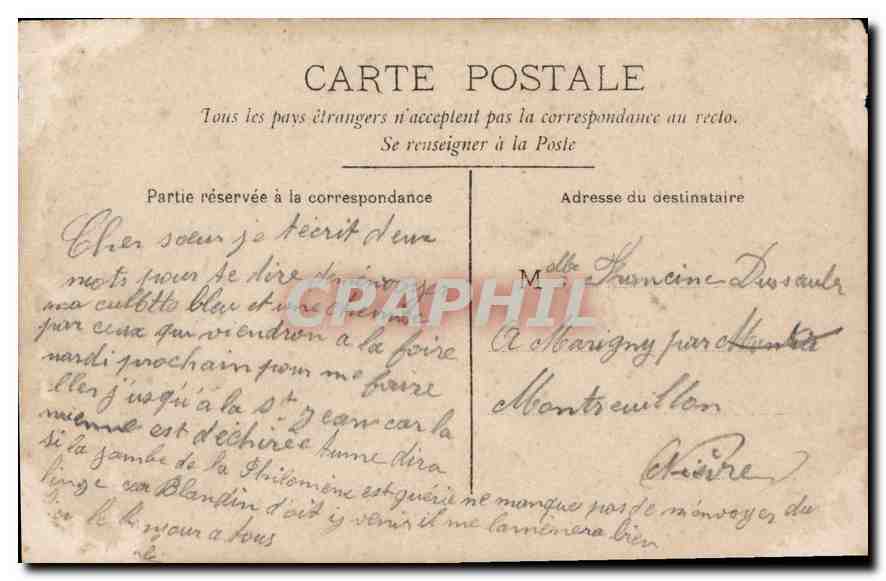 CARTE POSTALE
Tous les pays étrangers n'acceptent pas la correspondance au recto.
Se renseigner à la Poste
Partie réservée à la correspondance
Cher sœur je técrit deux
mots pour te dire de m'envoyer
ma culbtto bleu et une chemise
par ceux qui viendron a la foire
mardi prochain pour me faire
aller j'usqu'á la St Jean car la
mienne est déchirée tu me dira
si la jambe de la Philomene est guérie ne manque pas de m'envoyer du
linge car Blandin d'oit y venir il me lamènera bien
le bonjour a tous
Adresse du destinataire
Mdlle Francine Dussaule
A Marigny par
Montreuillon
Nièvre
CPAPHIL